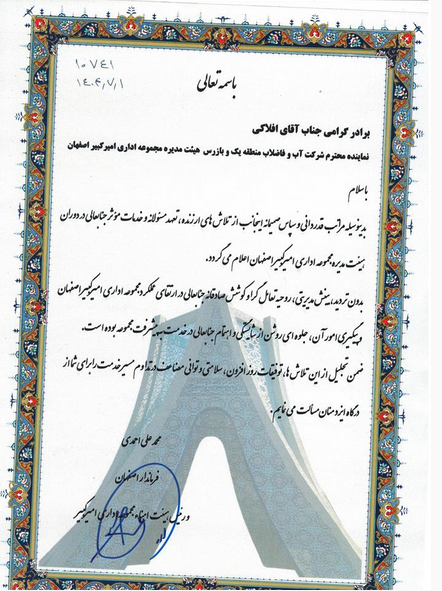 ۱۰۷۴۱
۱۴۰۴/۷/۱
باسمه تعالی
برادر گرامی جناب آقای افلاکی
نماینده محترم شرکت آب و فاضلاب منطقه یک و بازرس هیئت مدیره مجموعه اداری امیرکبیر اصفهان
با سلام
بدینوسیله مراتب قدردانی و سپاس صمیمانه اینجانب از تلاش های ارزنده، تعهد مسئولانه و خدمات مؤثر جنابعالی در دوران
هیئت مدیره مجموعه اداری امیرکبیر اصفهان اعلام می گردد.
بدون تردید، بینش مدیریتی، روحیه تعامل گرا و کوشش صادقانه جنابعالی در ارتقای عملکرد مجموعه اداری امیرکبیر اصفهان
و پیگیری امور آن، جلوه ای روشن از شایستگی و اهتمام جنابعالی در خدمت به پیشرفت مجموعه بوده است.
ضمن تجلیل از این تلاش ها، توفیقات روز افزون، سلامتی و توانی مضاعف در تداوم مسیر خدمت را برای شما از
درگاه ایزد منان مسألت می نمایم.
محمد علی احمدی
فرماندار اصفهان
و رئیس هیئت امناء مجموعه اداری امیرکبیر